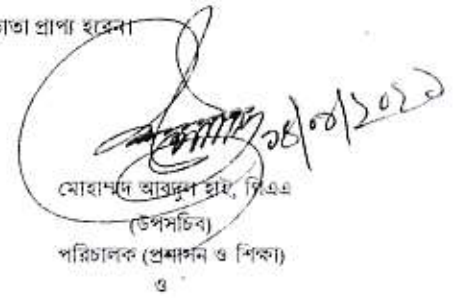 ভাতা প্রাপ্য হবেন।
১৪/০৮/২০২১
মোহাম্মদ আবদুল হাই, পিএএ
(উপসচিব)
পরিচালক (প্রশাসন ও শিক্ষা)
ও